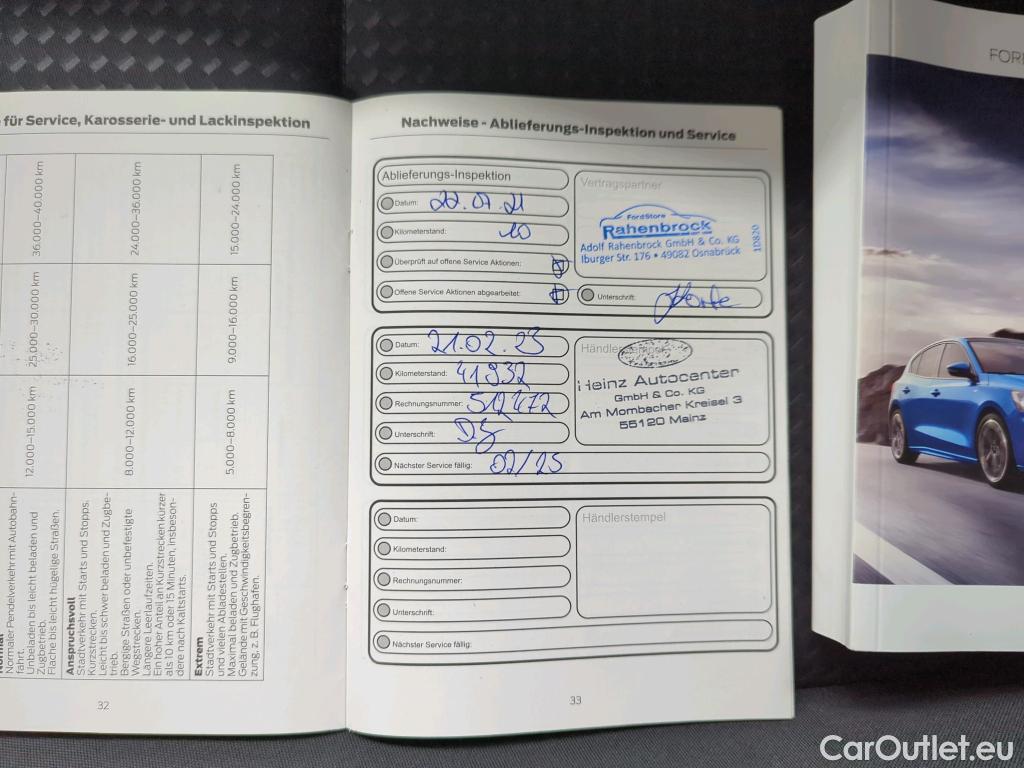 e für Service, Karosserie- und Lackinspektion
36.000–40.000 km
24.000–36.000 km
15.000–24.000 km
25.000–30.000 km
16.000–25.000 km
9.000–16.000 km
12.000–15.000 km
8.000–12.000 km
5.000–8.000 km
Normaler Pendelverkehr mit Autobahn-
fahrt.
Unbeladen bis leicht beladen und
Zugbetrieb.
Flache bis leicht hügelige Straßen.
Anspruchsvoll
Stadtverkehr mit Starts und Stopps.
Kurzstrecken.
Leicht bis schwer beladen und Zugbe-
trieb.
Bergige Straßen oder unbefestigte
Wegstrecken.
Längere Leerlaufzeiten.
Ein hoher Anteil an Kurzstrecken kürzer
als 10 km oder 15 Minuten, insbeson-
dere nach Kaltstarts.
Extrem
Stadtverkehr mit Starts und Stopps
und vielen Abladestellen.
Maximal beladen und Zugbetrieb.
Gelände mit Geschwindigkeitsbegren-
zung, z. B. Flughäfen.
32
Nachweise - Ablieferungs-Inspektion und Service
Ablieferungs-Inspektion
Datum: 22.07.21
Kilometerstand: 10
Überprüft auf offene Service Aktionen:
Offene Service Aktionen abgearbeitet:
Vertragspartner
FordStore
Rahenbrock
Adolf Rahenbrock GmbH & Co. KG
Iburger Str. 176 • 49082 Osnabrück
1D820
Unterschrift:
Datum: 21.02.23
Kilometerstand: 41932
Rechnungsnummer: 512472
Unterschrift:
Nächster Service fällig: 02/25
Händlerstempel
Heinz Autocenter
GmbH & Co. KG
Am Mombacher Kreisel 3
55120 Mainz
Datum:
Kilometerstand:
Rechnungsnummer:
Unterschrift:
Nächster Service fällig:
Händlerstempel
33
FOR
CarOutlet.eu